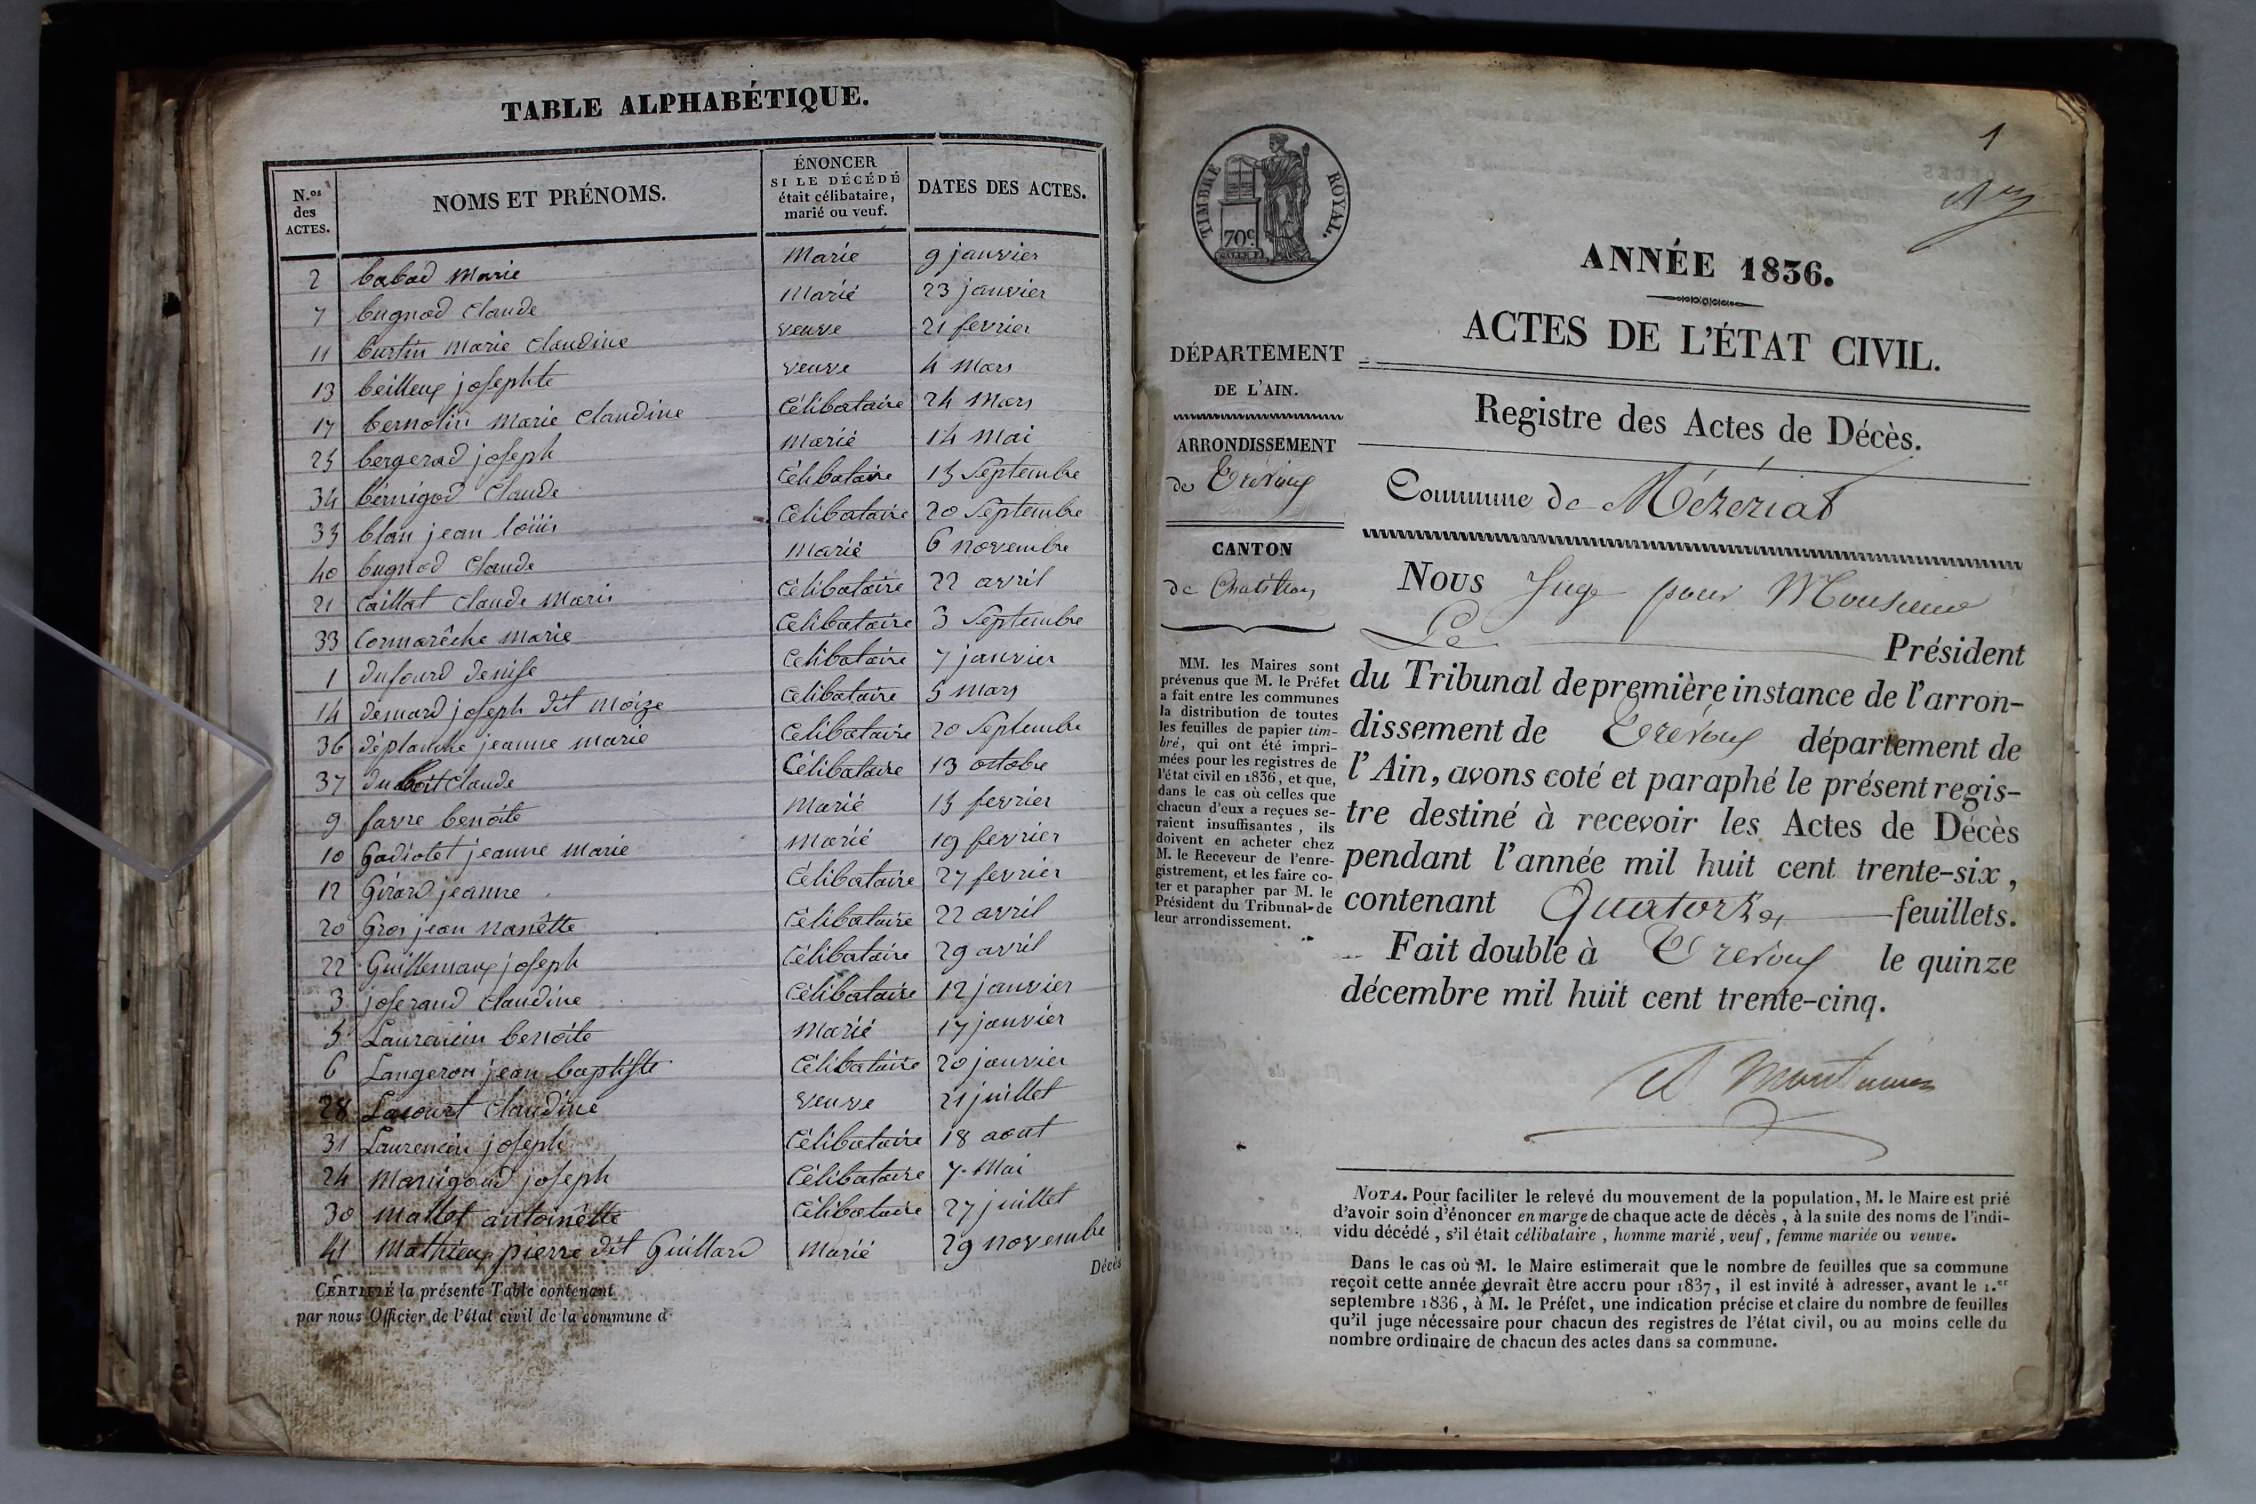 TABLE ALPHABÉTIQUE.
N.os des ACTES.
NOMS ET PRÉNOMS.
ÉNONCER
SI LE DÉCÉDÉ
était célibataire,
marié ou veuf.
DATES DES ACTES.
2 babad marie Marié 9 janvier
7 bugnod claude Marié 23 janvier
11 burtin marie claudine veuve 21 fevrier
13 beilleux josephte veuve 4 Mars
17 bernolin marie claudine Célibataire 24 Mars
25 bergerad joseph Marié 14 Mai
34 bérnigod claude Célibataire 15 Septembre
35 blan jean loüis Célibataire 20 Septembre
40 bugnod claude Marié 6 novembre
21 Caillat claude marie Célibataire 22 avril
33 Cormarêche marie Célibataire 3 Septembre
1 dufourd denise Célibataire 7 janvier
14 demard joseph dit moize Célibataire 5 mars
36 déplanche jeanne marie Célibataire 20 Septembre
37 duboit claude Célibataire 13 octobre
9 favre benoite Marié 15 fevrier
10 Gadiolet jeanne marie Marié 19 fevrier
12 Girard jeanne Célibataire 27 fevrier
20 Gros jean nanêtte Célibataire 22 avril
22 Guillemaux joseph Célibataire 29 avril
3 joserand claudine Célibataire 12 janvier
5 Laurencin benoite Marié 17 janvier
6 Langeron jean baptiste Célibataire 20 janvier
28 Lacourt claudine veuve 21 juillet
31 Laurencin joseph Célibataire 18 aout
24 Manigand joseph Célibataire 7 Mai
30 Mallet antoinêtte Célibataire 27 juillet
41 Mathieux pierre dit Guillard Marié 29 novembre
Décès
CERTIFIÉ la présente Table contenant
par nous Officier de l'état civil de la commune d
1
TIMBRE ROYAL.
70c
ANNÉE 1836.
ACTES DE L'ÉTAT CIVIL.
Registre des Actes de Décès.
Commune de Mézériat
DÉPARTEMENT
DE L'AIN.
ARRONDISSEMENT
de Trévoux
CANTON
de Chatillon
MM. les Maires sont
prévenus que M. le Préfet
a fait entre les communes
la distribution de toutes
les feuilles de papier tim-
bré, qui ont été impri-
mées pour les registres de
l'état civil en 1836, et que,
dans le cas où celles que
chacun d'eux a reçues se-
raient insuffisantes, ils
doivent en acheter chez
M. le Receveur de l'enre-
gistrement, et les faire co-
ter et parapher par M. le
Président du Tribunal de
leur arrondissement.
Nous Juge pour Monsieur
Le Président
du Tribunal de première instance de l'arron-
dissement de Trévoux département de
l'Ain, avons coté et paraphé le présent regis-
tre destiné à recevoir les Actes de Décès
pendant l'année mil huit cent trente-six,
contenant Quatorze feuillets.
Fait double à Trévoux le quinze
décembre mil huit cent trente-cinq.
NOTA. Pour faciliter le relevé du mouvement de la population, M. le Maire est prié
d'avoir soin d'énoncer en marge de chaque acte de décès, à la suite des noms de l'indi-
vidu décédé, s'il était célibataire, homme marié, veuf, femme mariée ou veuve.
Dans le cas où M. le Maire estimerait que le nombre de feuilles que sa commune
reçoit cette année devrait être accru pour 1837, il est invité à adresser, avant le 1.er
septembre 1836, à M. le Préfet, une indication précise et claire du nombre de feuilles
qu'il juge nécessaire pour chacun des registres de l'état civil, ou au moins celle du
nombre ordinaire de chacun des actes dans sa commune.